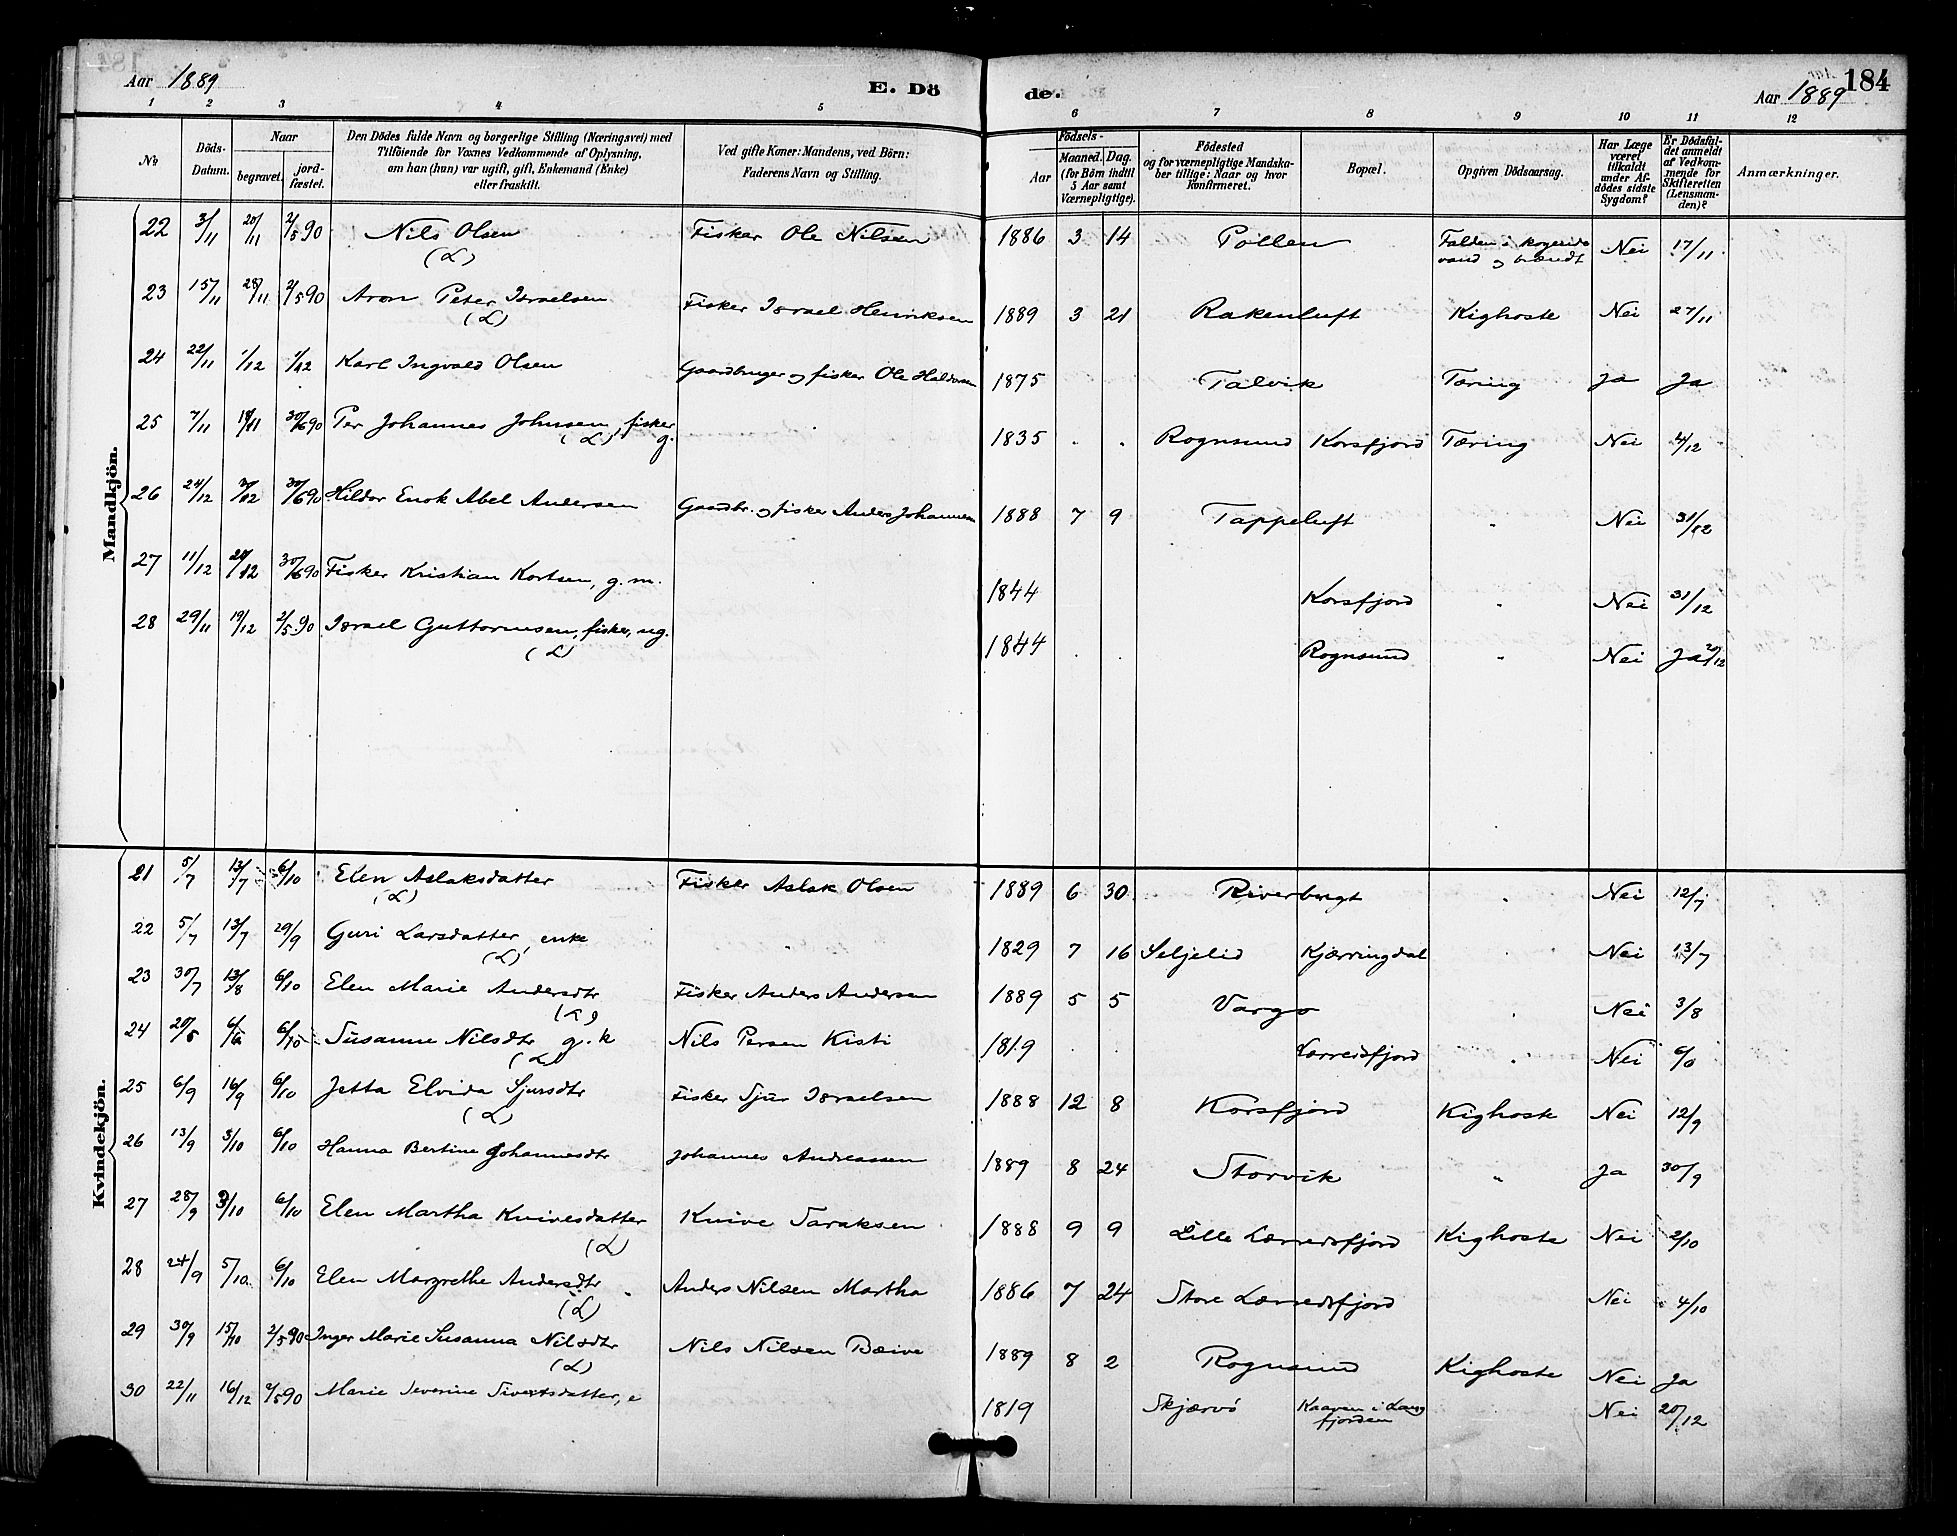 Aar 1889 E. Dö de. Aar 1889 184
1 2 3 4 5 6 7 8 9 10 11 12
No Döds-Datum. Naar begravet. jord-fæstet. Den Dödes fulde Navn og borgerlige Stilling (Næringsvei) med Tilföiende for Voxnes Vedkommende af Oplysning, om han (hun) var ugift, gift, Enkemand (Enke) eller fraskilt. Ved gifte Koner: Mandens, ved Börn: Faderens Navn og Stilling. Födsels- Aar Maaned. Dag. (for Börn indtil 5 Aar samt Værnepligtige). Födested og for værnepligtige Mandskaber tillige: Naar og hvor Konfirmeret. Bopæl. Opgiven Dödsaarsag. Har Læge været tilkaldt under Afdödes sidste Sygdom? Er Dödsfaldet anmeldt af Vedkommende for Skifteretten (Lensmanden)? Anmærkninger.
Mandkjön.
22 3/11 20/11 2/5 90 Nils Olsen (L) Fisker Ole Nilsen 1886 3 14 Pollen Falden i kogende vand og brændt Nei 17/11
23 15/11 28/11 2/5 90 Aron Peter Israelsen (L) Fisker Israel Henriksen 1889 3 21 Rakenluft Kighoste Nei 27/11
24 22/11 1/12 1/12 Karl Ingvald Olsen Gaardbruger og fisker Ole Haldorsen 1875 Talvik Tæring Ja Ja
25 7/11 30/6 90 Per Johannes Johnsen, fisker g. (L) 1835 Rognsund Korsfjord Tæring Nei 4/12
26 24/12 30/6 90 Hildor Enok Abel Andersen Gaardbr. og fisker Anders Johannesen 1888 7 9 Tappeluft " Nei 31/12
27 11/12 30/6 90 Fisker Kristian Kortsen, g. m. 1844 Korsfjord " Nei 31/12
28 29/11 19/12 2/5 90 Israel Guttormsen, fisker, ug. (L) 1844 Rognsund " Nei Ja 20/12
Kvindekjön.
21 5/7 13/7 6/10 Elen Aslaksdatter (L) Fisker Aslak Olsen 1889 6 30 Riverbugt Nei 12/7
22 5/7 13/7 29/9 Guri Larsdatter, enke (L) 1829 7 16 Seljelid Kjærringdal Nei 13/7
23 30/7 13/8 6/10 Elen Marie Andersdtr Fisker Anders Andersen 1889 5 5 Vargø Nei 3/8
24 20/5 6/6 6/10 Susanne Nilsdtr g. k (L) Nils Persen Kisti 1819 Lærredsfjord Nei
25 6/9 16/9 6/10 Jetta Elvida Sjursdtr (L) Fisker Sjur Israelsen 1888 12 8 Korsfjord Kighoste Nei 12/9
26 13/9 3/10 6/10 Hanna Bertine Johannesdtr Johannes Andreassen 1889 8 24 Storvik " Ja 30/9
27 28/9 3/10 6/10 Elen Martha Knivesdatter (L) Knive Saraksen 1888 9 9 Lille Lærredsfjord Kighoste Nei 2/10
28 24/9 5/10 6/10 Elen Margrethe Andersdtr (L) Anders Nilsen Martha 1886 7 24 Store Lærredsfjord Nei 4/10
29 30/9 15/10 2/5 90 Inger Marie Susanna Nilsdtr (L) Nils Nilsen Bæive 1889 8 2 Rognsund Kighoste Nei Ja
30 22/11 16/12 2/5 90 Marie Severine Sivertsdatter, e 1819 Skjærvö Kaaven i Langfjorden Nei 20/12